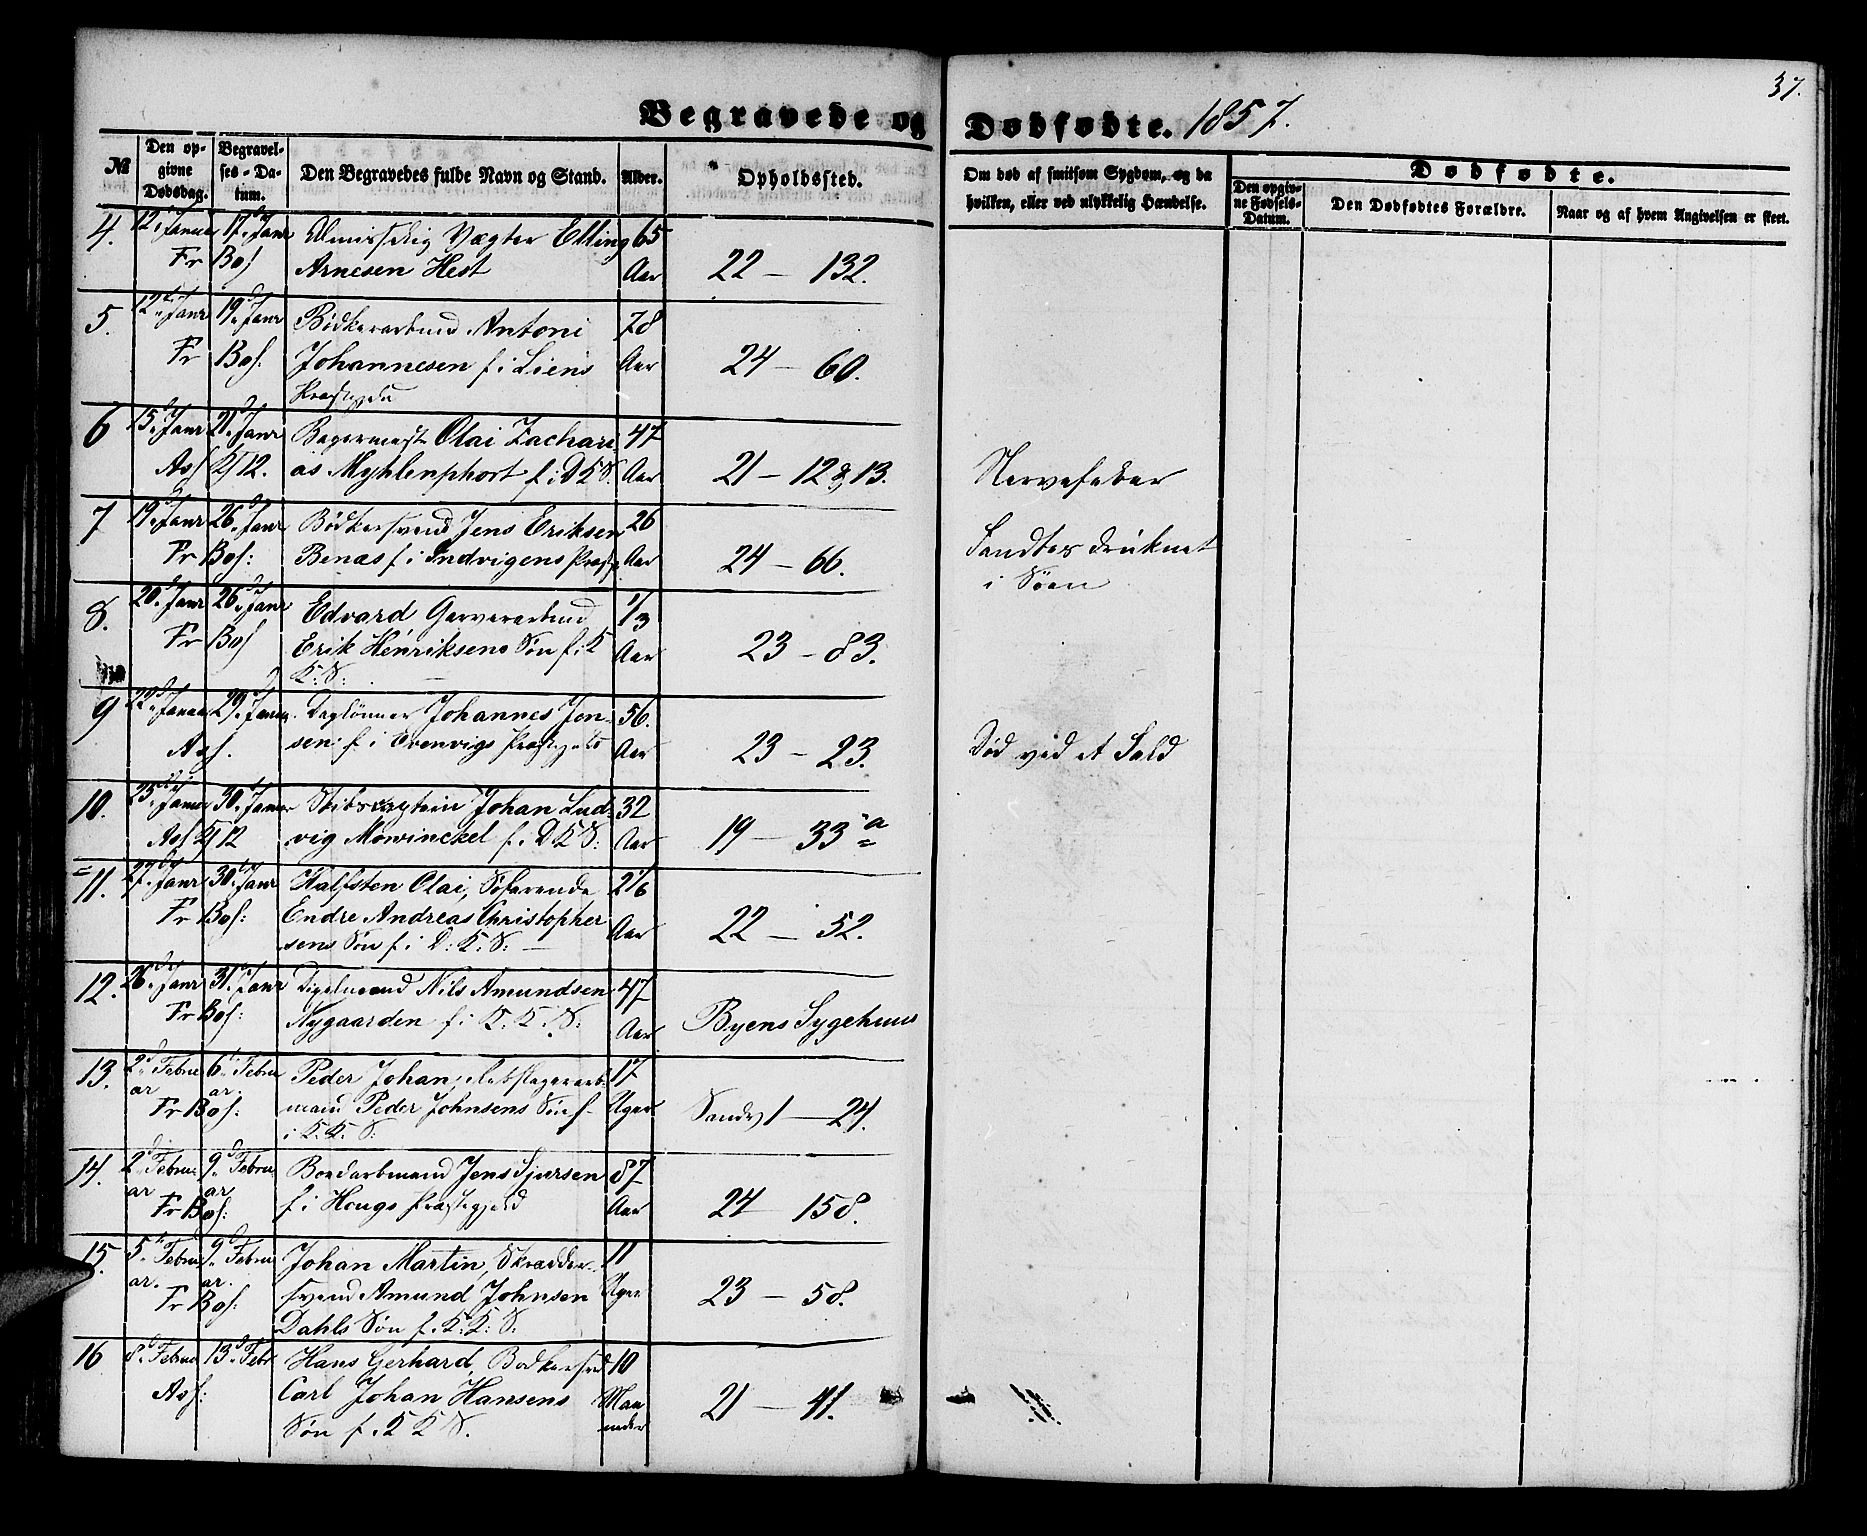 37.
Begravede og Dødfødte. 1857.
№ Den opgivne Dødsdag. Begravelses-Datum. Den Begravedes fulde Navn og Stand. Alder. Opholdssted. Om død af smitsom Sygdom, og da hvilken, eller ved ulykkelig Hændelse. Dødfødte.
Den opgivne Fødsels-Datum. Den Dødfødtes Forældre. Naar og af hvem Angivelsen er skeet.
4. 12 Januar 17 Janr Almisselig Vægter Elling 65
Fr Bos Arnesen Hest Aar 22 – 132.
5. 12 Janr 19 Janr Bødkerarbmd Antoni 78
Fr Bos: Johannesen f i Liens Aar 24 – 60.
Præstegjeld
6 15 Janr 21 Janr Bagermest Olai Zachari 47
Ass K 12. as Myhlenphort f. i D K S. Aar 21 – 12 & 13. Nervefeber
7 19 Janr 26 Janr Bødkersvend Jens Eriksen 26 Fandtes druknet
Fr Bos: Benas f i Indvigens Præstg Aar 24 – 66. i Søen
8. 20 Janr 26 Janr Edvard Garverarbmd 1/3
Fr Bos Erik Henriksens Søn f. i K Aar 23 – 83.
K: S:
9 22 Januar 29 Januar Daglønner Johannes Jon- 56.
Ass. sen f i Evenvigs Præstegjeld Aar 23 – 23. Død ved et Fald
10. 25 Januar 30 Januar Skibscaptein Johan Lud- 32
Ass K 12 vig Mowinckel f. D K S: Aar 19 – 33 a
11. 27 Janr 30 Janr Halfsten Olai, Søfarende 2 1/6
Fr Bos: Endre Andreas Christopher
sens Søn f i D: K: S: Aar 22 – 52.
12. 26 Janr 31 Janr Nils Amundsen 47
Fr Bos: Nygaarden f i K. K. S: Aar Byens Sygehuus
13. 2 Februar 6 Februar Peder Johan, 17
Fr Bos: mand Peder Johnsens Søn f. Uger Sandv 1 – 24.
i K. K. S:
14. 2 Februar 9 Februar Bordarbmand Jens Sjursen 87
Fr Bos: f i Hougs Præstegjeld Aar 24 158.
15. 5 Februar. 9 Februar. Johan Martin, Skrædder- 11
Fr Bos: svend Amund Johnsen Uger 23 – 58.
Dahls Søn f. K: K: S:
16 8 Februar 13 Febr Hans Gerhard, Bødkersvd 10
Ass: Carl Johan Hansens Maa 21 – 41.
Søn f. K K S. neder